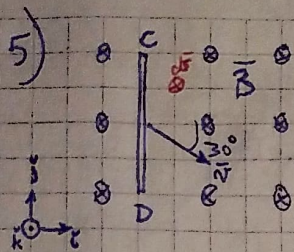 5)
C
B
30
D
j
k i